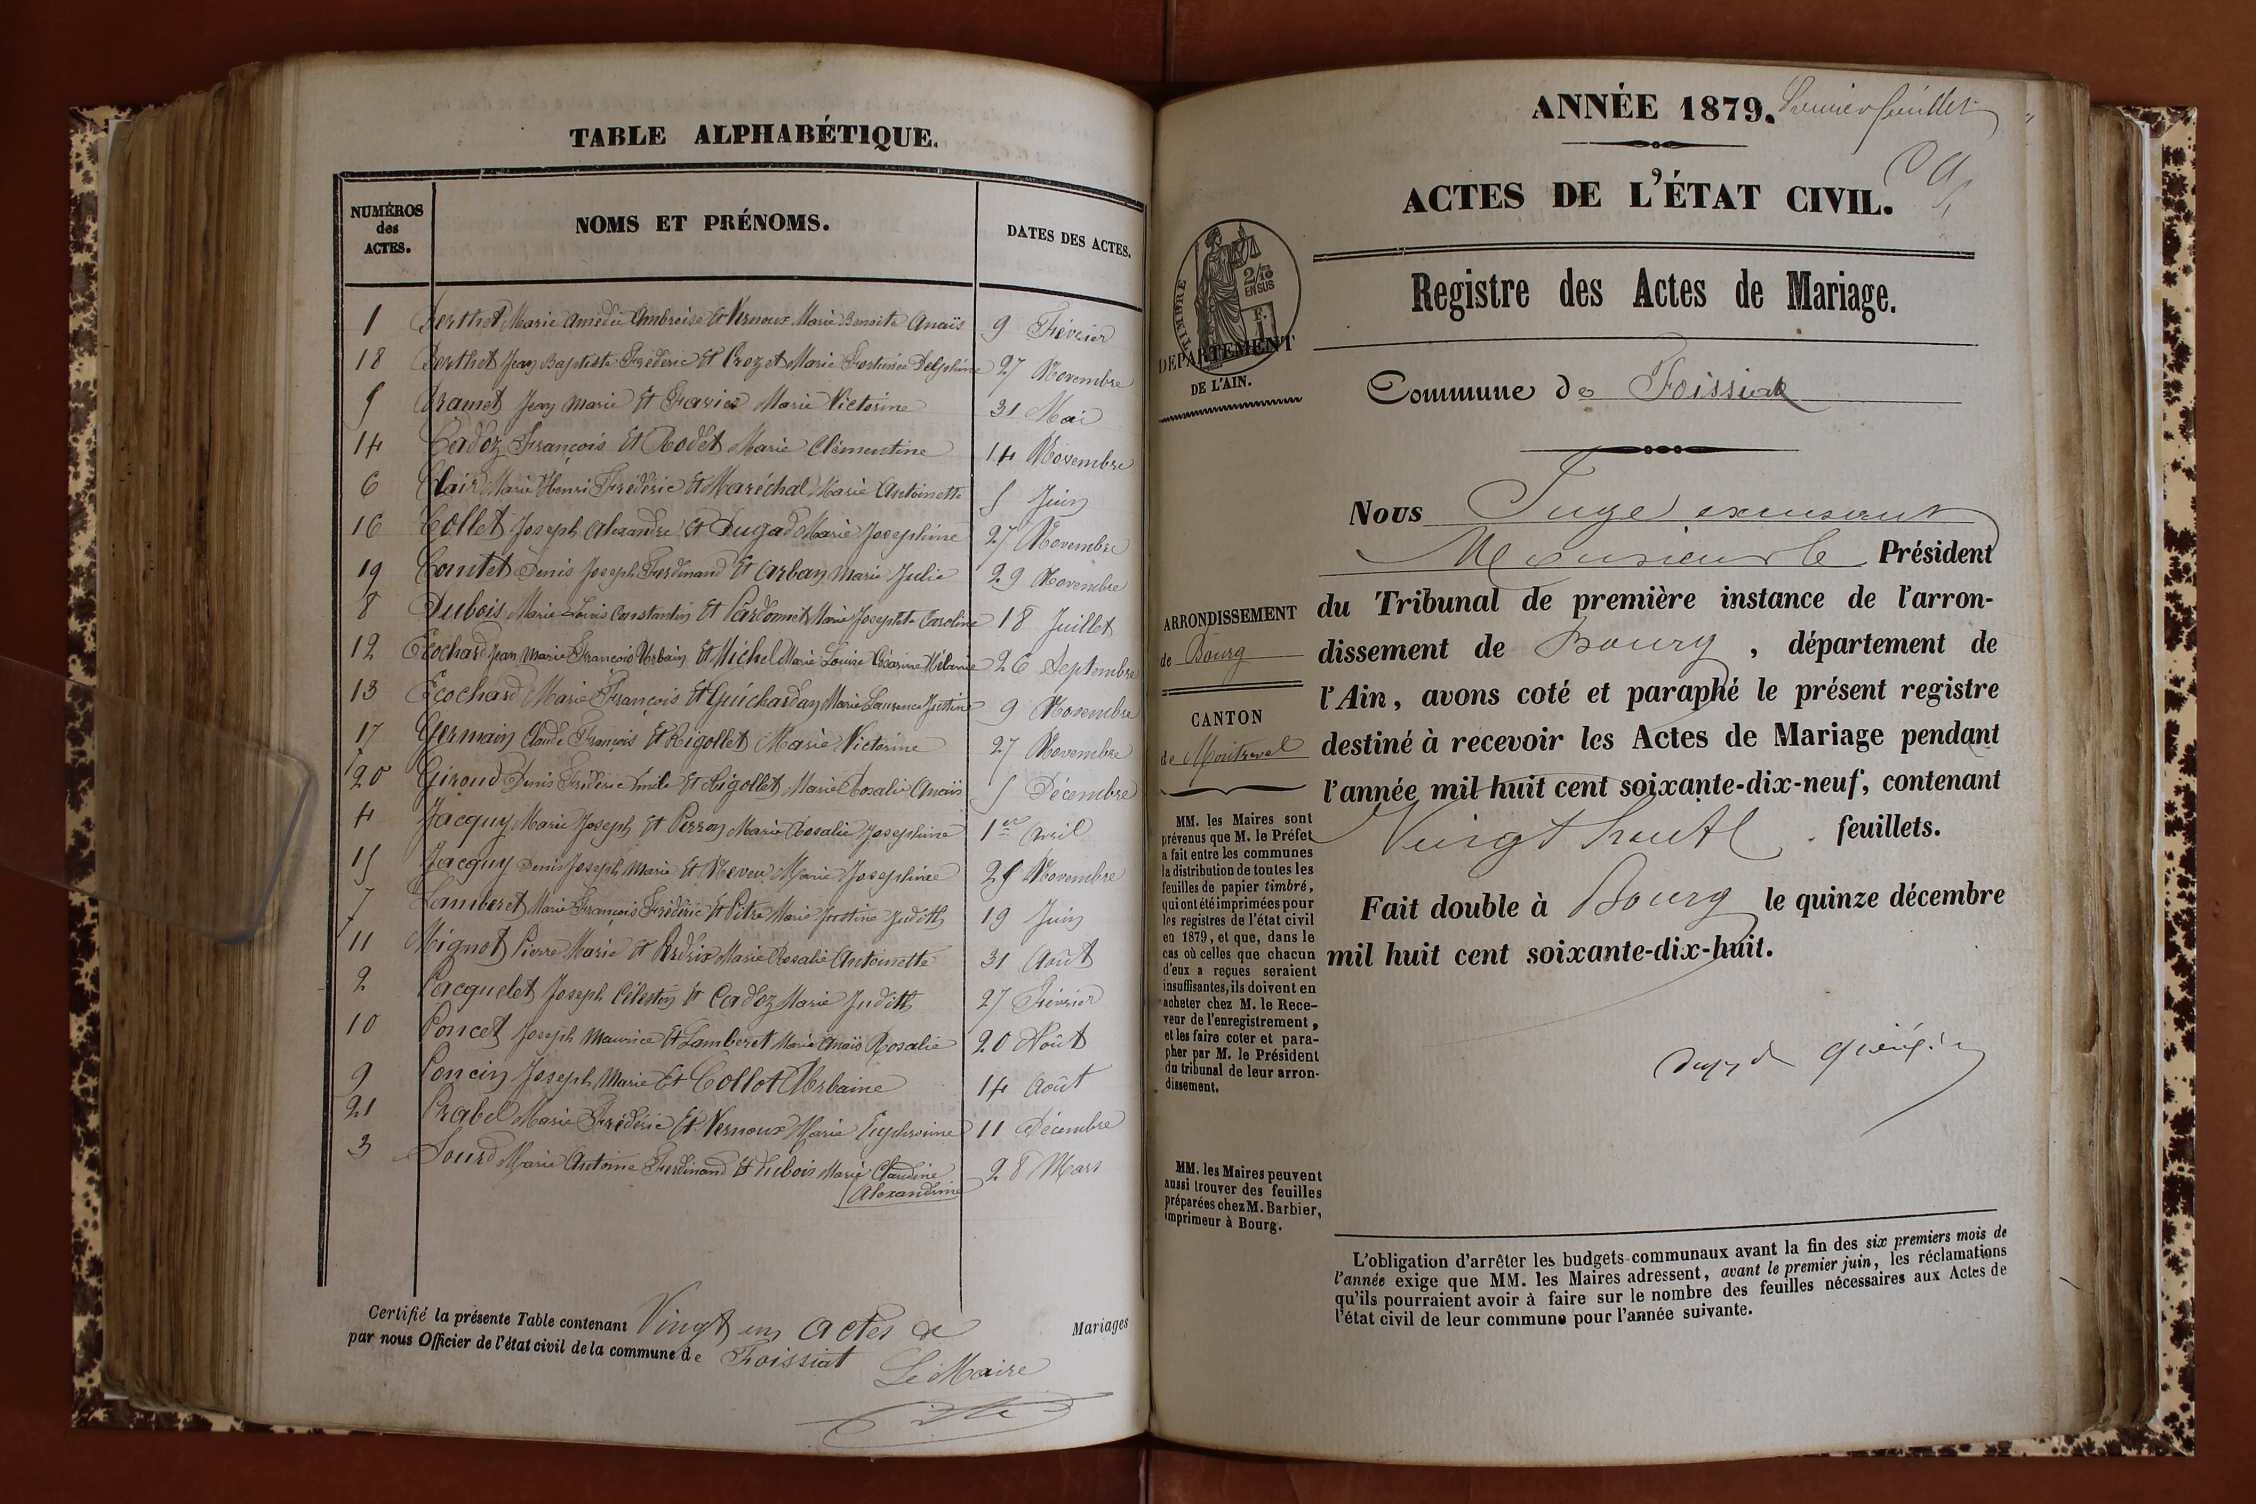 TABLE ALPHABÉTIQUE.
NUMÉROS des ACTES. NOMS ET PRÉNOMS. DATES DES ACTES.
1 Berthet Marie Amédée Ambroise Et Vernoux Marie Benoite Anaïs 9 Février
18 Berthet Jean Baptiste Frédéric Et Crozet Marie Fortunée Delphine 27 Novembre
5 Bramet Jean Marie Et Favier Marie Victorine 31 Mai
14 Cadoz François Et Rodet Marie Clémentine 14 Novembre
6 Clair Marie Henri Frédéric Et Maréchal Marie Antoinette 5 Juin
16 Collet Joseph Alexandre Et Dugad Marie Josephine 27 Novembre
19 Comtet Denis Joseph Ferdinand Et Arban Marie Julie 29 Novembre
8 Dubois Marie Louis Constantin Et Pardonnet Marie Josephte Caroline 18 Juillet
12 Ecochard Jean Marie François Urbain Et Michel Marie Louise Césarine Mélanie 26 Septembre
13 Ecochard Marie François Et Guichardan Marie Laurence Justine 9 Novembre
17 Germain Claude François Et Rigollet Marie Victorine 27 Novembre
20 Giroud Denis Frédéric Emile Et Rigollet Marie Rosalie Anaïs 5 Décembre
4 Jacquy Marie Joseph Et Perron Marie Rosalie Josephine 1er Avril
15 Jacquy Denis Joseph Marie Et Neveu Marie Josephine 25 Novembre
7 Lamberet Marie François Frédéric Et Pitre Marie Justine Judith 19 Juin
11 Mignot Pierre Marie Et Perdrix Marie Rosalie Antoinette 31 Août
2 Pacquelet Joseph Célestin Et Cadoz Marie Judith 27 Février
10 Poncet Joseph Maurice Et Lamberet Marie Anaïs Rosalie 20 Août
9 Poncin Joseph Marie Et Collot Urbaine 14 Août
21 Prabel Marie Frédéric Et Vernoux Marie Euphrosine 11 Décembre
3 Sourd Marie Antoine Ferdinand Et Dubois Marie Claudine 28 Mars
Alexandrine
Certifié la présente Table contenant Vingt un actes de Mariages
par nous Officier de l'état civil de la commune de Foissiat
Le Maire
ANNÉE 1879. Premier feuillet
ACTES DE L'ÉTAT CIVIL.
TIMBRE
2/10
EN SUS
Registre des Actes de Mariage.
DEPARTEMENT
DE L'AIN.
Commune de Foissiat
Nous Juge excusant
Monsieur le Président
du Tribunal de première instance de l'arron-
dissement de Bourg, département de
l'Ain, avons coté et paraphé le présent registre
destiné à recevoir les Actes de Mariage pendant
l'année mil huit cent soixante-dix-neuf, contenant
Vingt huit feuillets.
Fait double à Bourg le quinze décembre
mil huit cent soixante-dix-huit.
ARRONDISSEMENT
de Bourg
CANTON
de Montrevel
MM. les Maires sont
prévenus que M. le Préfet
a fait entre les communes
la distribution de toutes les
feuilles de papier timbré,
qui ont été imprimées pour
les registres de l'état civil
en 1879, et que, dans le
cas où celles que chacun
d'eux a reçues seraient
insuffisantes, ils doivent en
acheter chez M. le Rece-
veur de l'enregistrement,
et les faire coter et para-
pher par M. le Président
du tribunal de leur arron-
dissement.
MM. les Maires peuvent
aussi trouver des feuilles
préparées chez M. Barbier,
imprimeur à Bourg.
L'obligation d'arrêter les budgets communaux avant la fin des six premiers mois de
l'année exige que MM. les Maires adressent, avant le premier juin, les réclamations
qu'ils pourraient avoir à faire sur le nombre des feuilles nécessaires aux Actes de
l'état civil de leur commune pour l'année suivante.